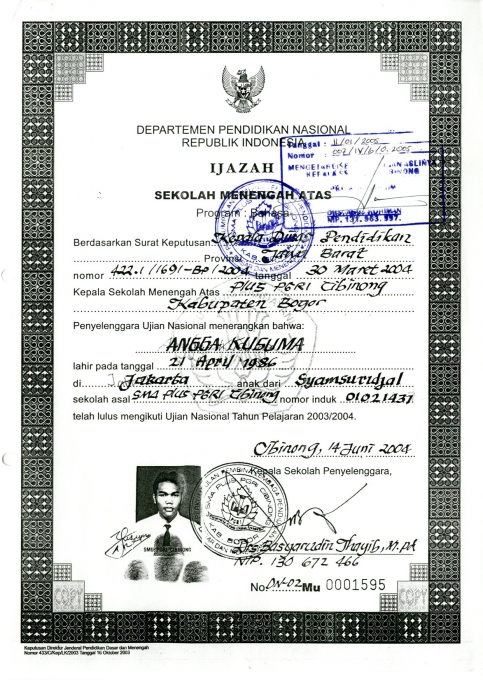 DEPARTEMEN PENDIDIKAN NASIONAL
REPUBLIK INDONESIA
Tanggal : 11/01/2005
Nomor :
IJAZAH
SEKOLAH MENENGAH ATAS
Program : Bahasa
Berdasarkan Surat Keputusan: Kepala Dinas Pendidikan
Provinsi Jawa Barat
nomor 422.1/1691-BP/2004 tanggal 30 Maret 2004
Kepala Sekolah Menengah Atas PLUS PGRI Cibinong
Kabupaten Bogor
Penyelenggara Ujian Nasional menerangkan bahwa:
ANGGA KUSUMA
lahir pada tanggal 21 April 1986
di Jakarta anak dari Syamsuridjal
sekolah asal SMA PLUS PGRI Cibinong nomor induk 01.02.1.437
telah lulus mengikuti Ujian Nasional Tahun Pelajaran 2003/2004.
Cibinong, 14 Juni 2004
Kepala Sekolah Penyelenggara,
Drs. Basyarudin Thayib, M.Pd
NIP. 130 672 466
No. DN-02 Mu 0001595
COPY
COPY
Keputusan Direktur Jenderal Pendidikan Dasar dan Menengah
Nomor 433/C/Kep/LK/2003 Tanggal 16 Oktober 2003